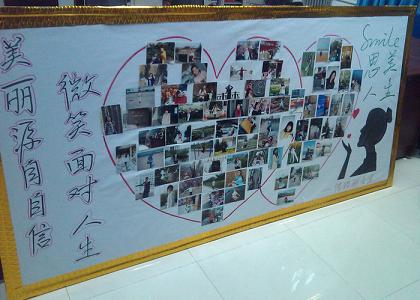 美丽源自自信
微笑面对人生
Smile
思美
人生